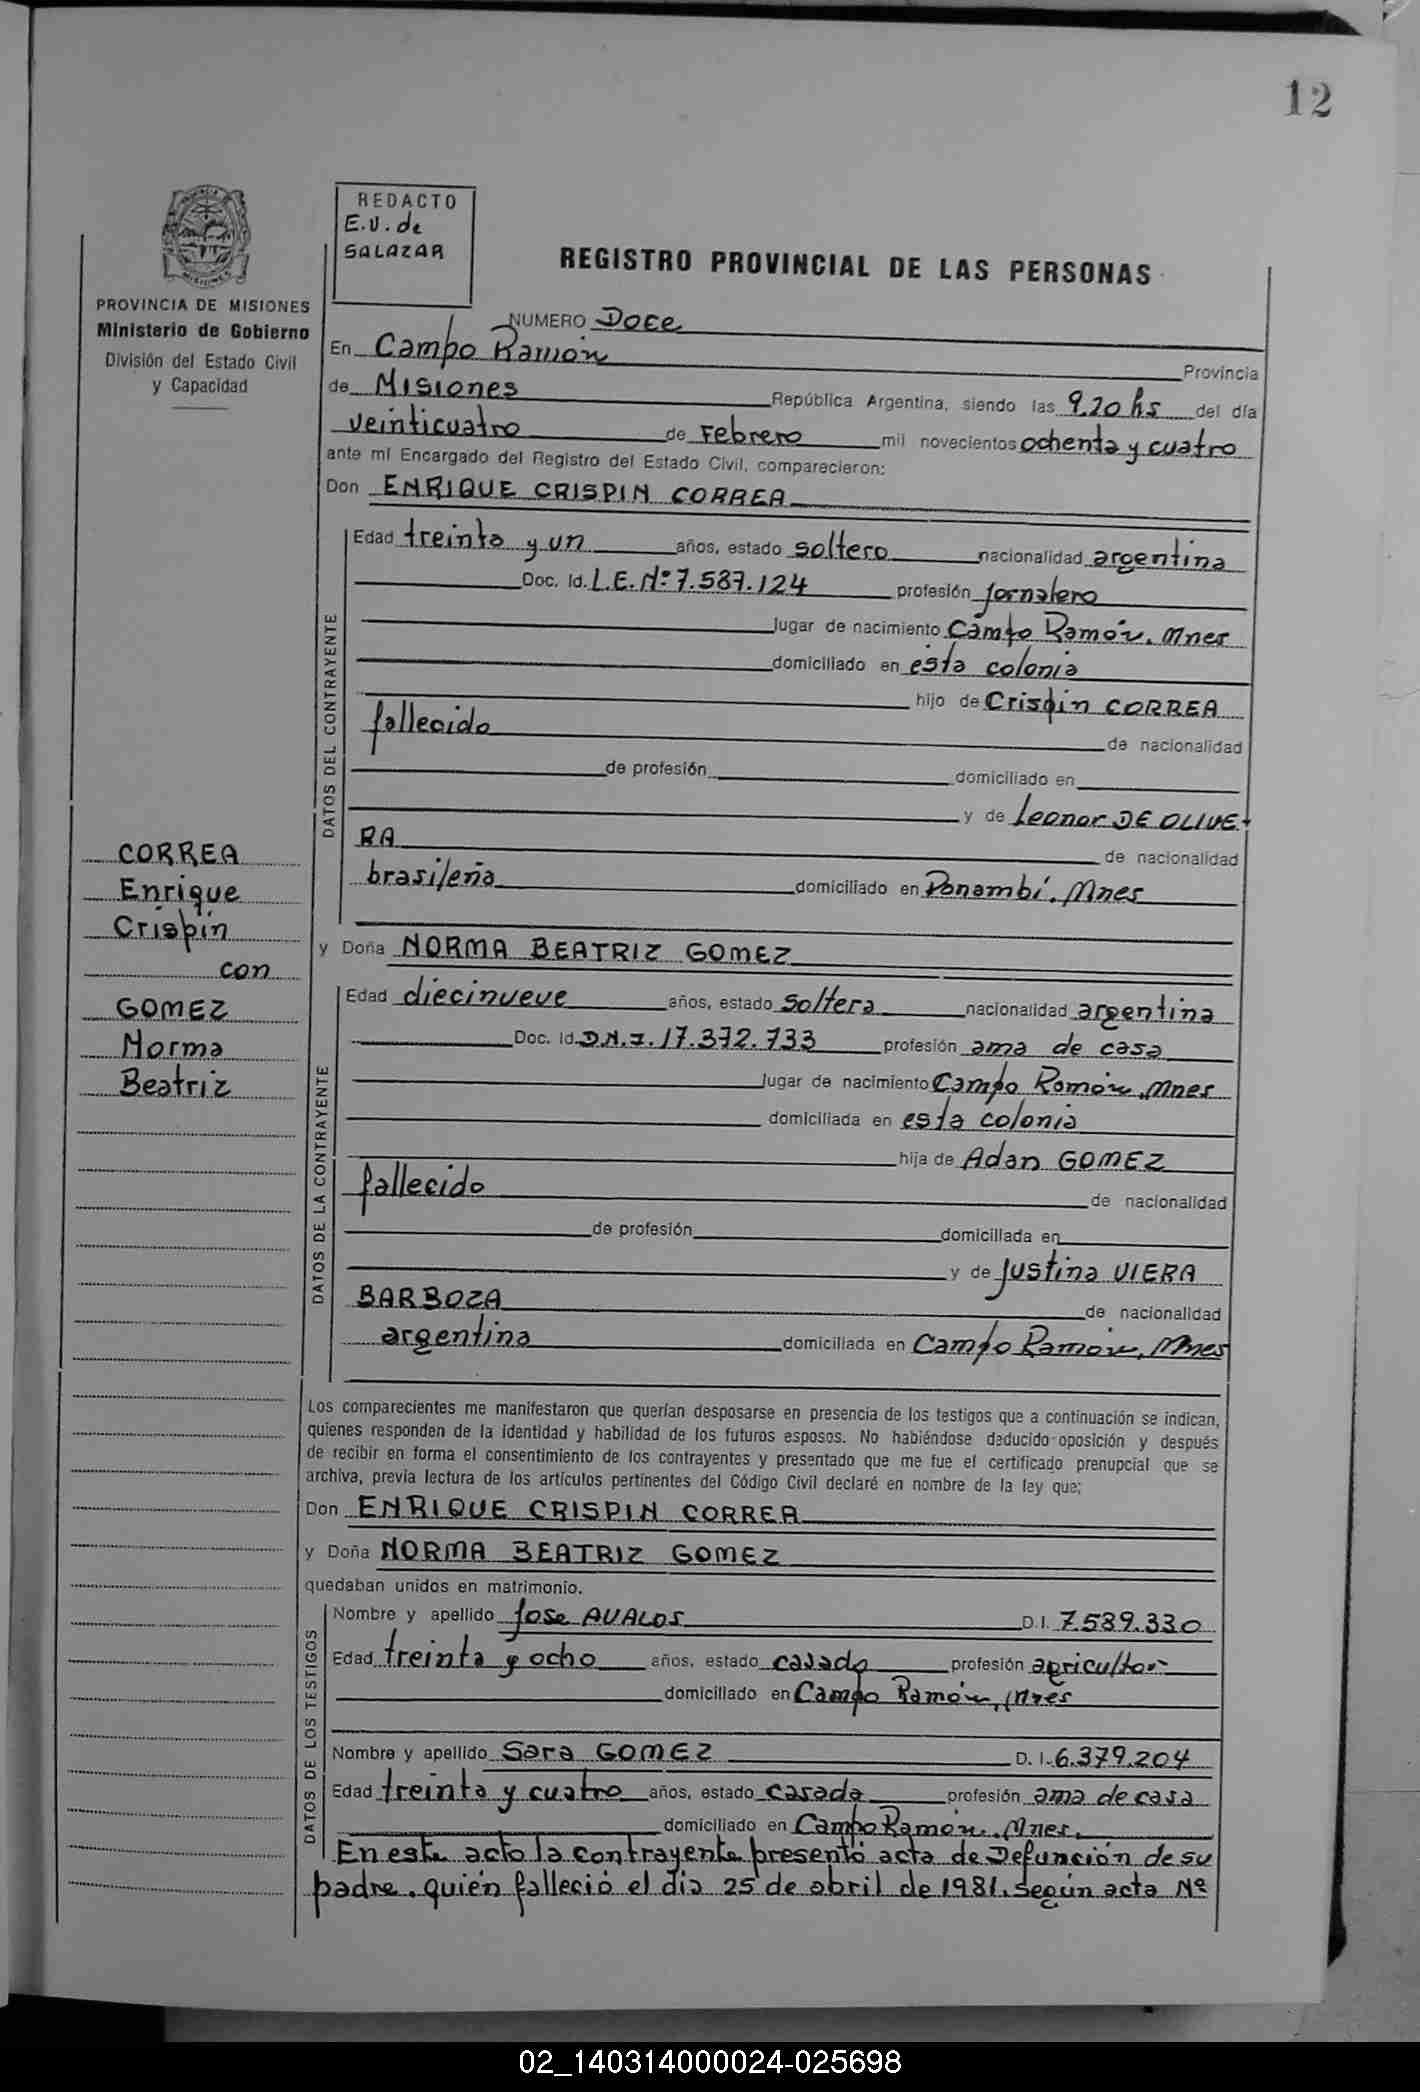 12
REDACTO
E.V. de
SALAZAR
REGISTRO PROVINCIAL DE LAS PERSONAS
PROVINCIA DE MISIONES
Ministerio de Gobierno
División del Estado Civil
y Capacidad
NUMERO Doce
En Campo Ramón Provincia
de Misiones República Argentina, siendo las 9,20 hs del día
veinticuatro de Febrero mil novecientos ochenta y cuatro
ante mí Encargado del Registro del Estado Civil, comparecieron:
Don ENRIQUE CRISPIN CORREA
DATOS DEL CONTRAYENTE
Edad treinta y un años, estado soltero nacionalidad argentina
Doc. Id. L.E. Nº 7.587.124 profesión Jornalero
lugar de nacimiento Campo Ramón, Mnes
domiciliado en esta colonia
hijo de Crispín CORREA
fallecido de nacionalidad
de profesión domiciliado en
y de Leonor DE OLIVE-
RA de nacionalidad
brasileña domiciliado en Panambí, Mnes
CORREA
Enrique
Crispín
con
GOMEZ
Norma
Beatriz
y Doña NORMA BEATRIZ GOMEZ
DATOS DE LA CONTRAYENTE
Edad diecinueve años, estado soltera nacionalidad argentina
Doc. Id. D.N.I. 17.372.733 profesión ama de casa
lugar de nacimiento Campo Ramón, Mnes
domiciliada en esta colonia
hija de Adan GOMEZ
fallecido de nacionalidad
de profesión domiciliada en
y de Justina VIERA
BARBOZA de nacionalidad
argentina domiciliada en Campo Ramón, Mnes
Los comparecientes me manifestaron que querían desposarse en presencia de los testigos que a continuación se indican,
quienes responden de la identidad y habilidad de los futuros esposos. No habiéndose deducido oposición y después
de recibir en forma el consentimiento de los contrayentes y presentado que me fue el certificado prenupcial que se
archiva, previa lectura de los artículos pertinentes del Código Civil declaré en nombre de la ley que;
Don ENRIQUE CRISPIN CORREA
y Doña NORMA BEATRIZ GOMEZ
quedaban unidos en matrimonio.
DATOS DE LOS TESTIGOS
Nombre y apellido Jose AVALOS D.I. 7.589.330
Edad treinta y ocho años, estado casado profesión agricultor
domiciliado en Campo Ramón, Mnes
Nombre y apellido Sara GOMEZ D.I. 6.379.204
Edad treinta y cuatro años, estado casada profesión ama de casa
domiciliado en Campo Ramón, Mnes.
En este acto la contrayente presentó acta de Defunción de su
padre, quién falleció el día 25 de abril de 1981, según acta Nº
02_140314000024-025698